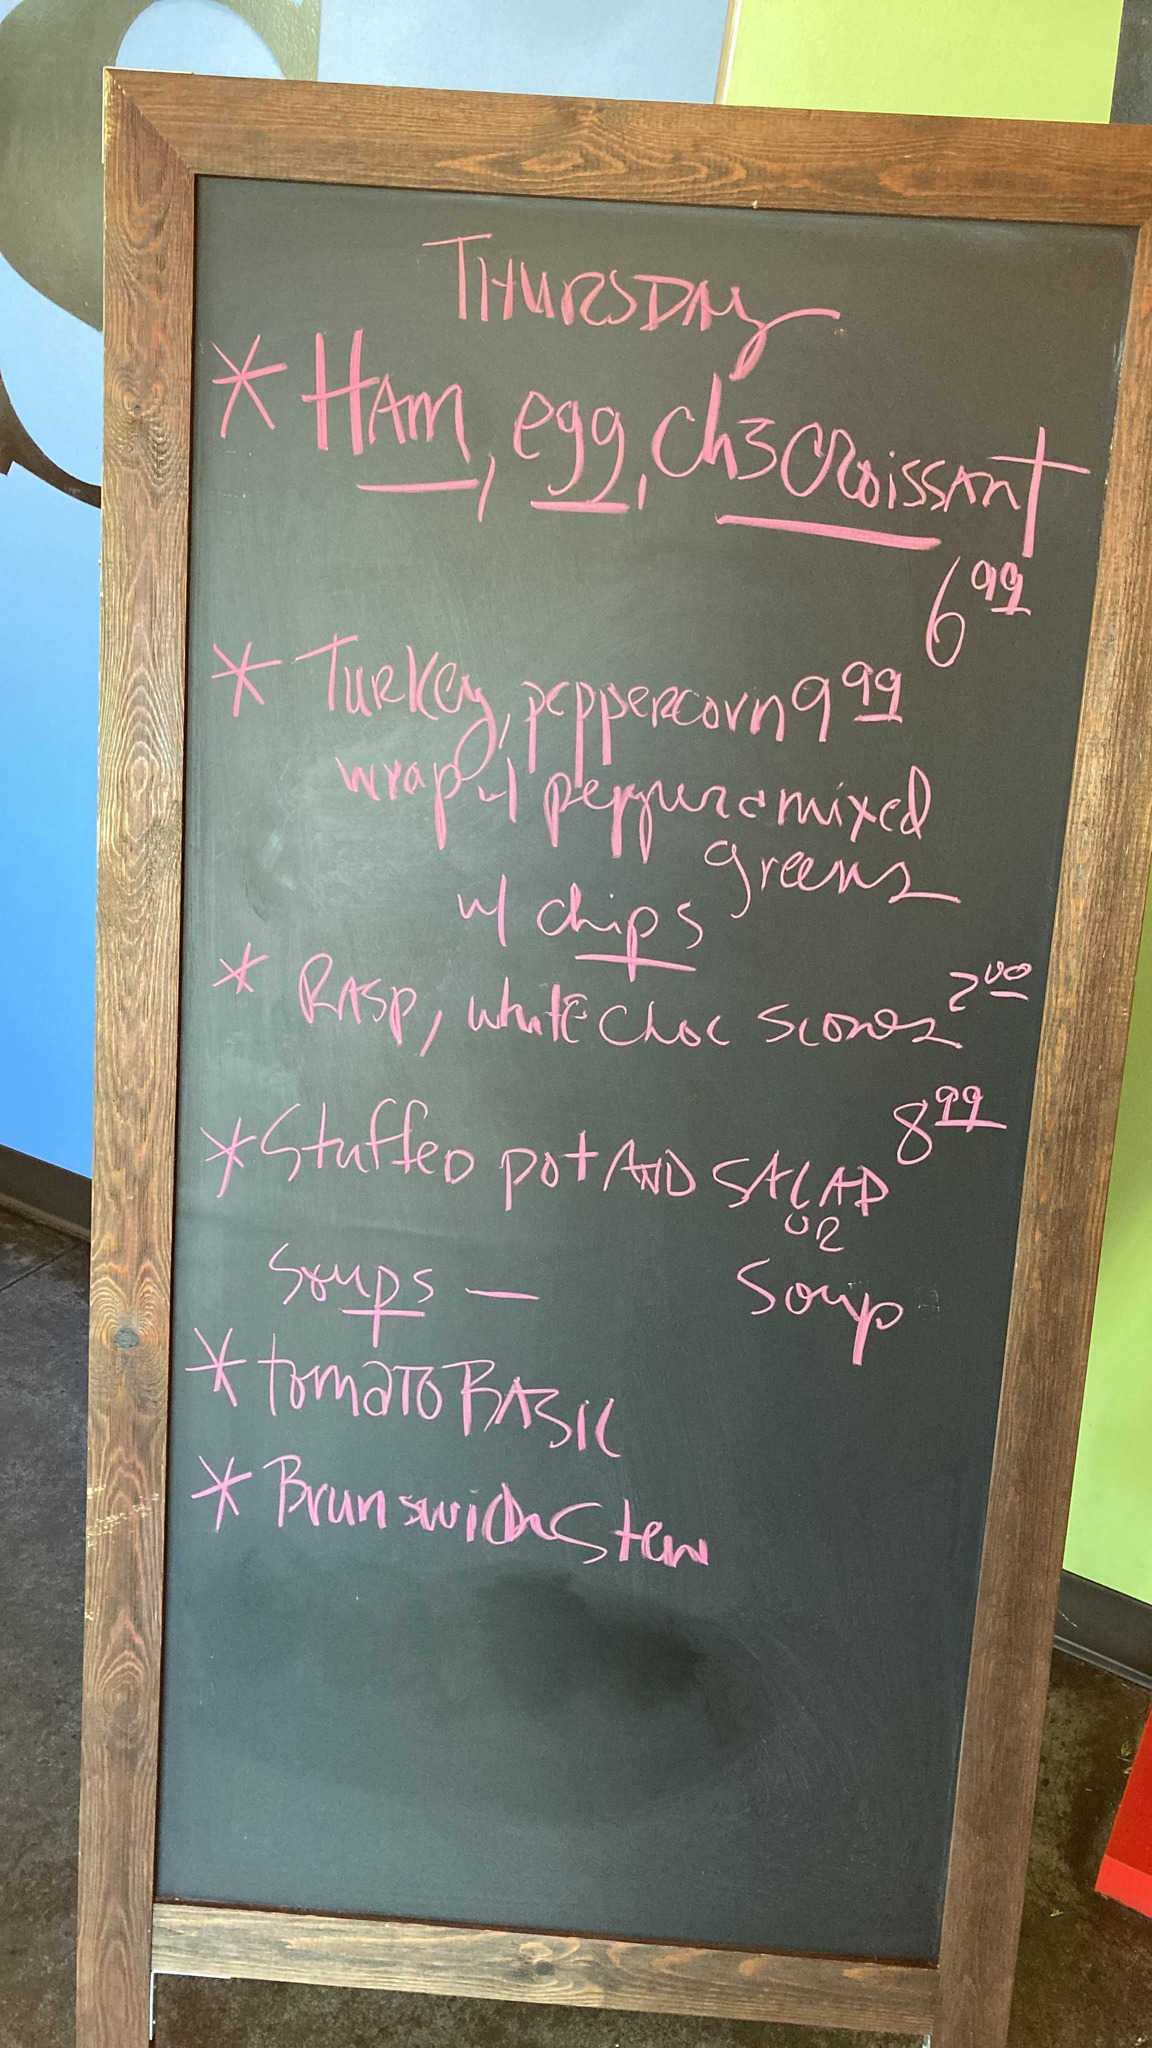 THURSDAY
* HAm, egg, ch3 CROissAnT
6 99
* TuRKey, peppercorn 9 99
wrap w/ mixed
greens
w/ chips
* RASP, whitE choc scones 2 00
* StuffeD pot AND SALAD 8 99
OR
Soups — Soup
* tomaTo BASIC
* Brunswick Stew